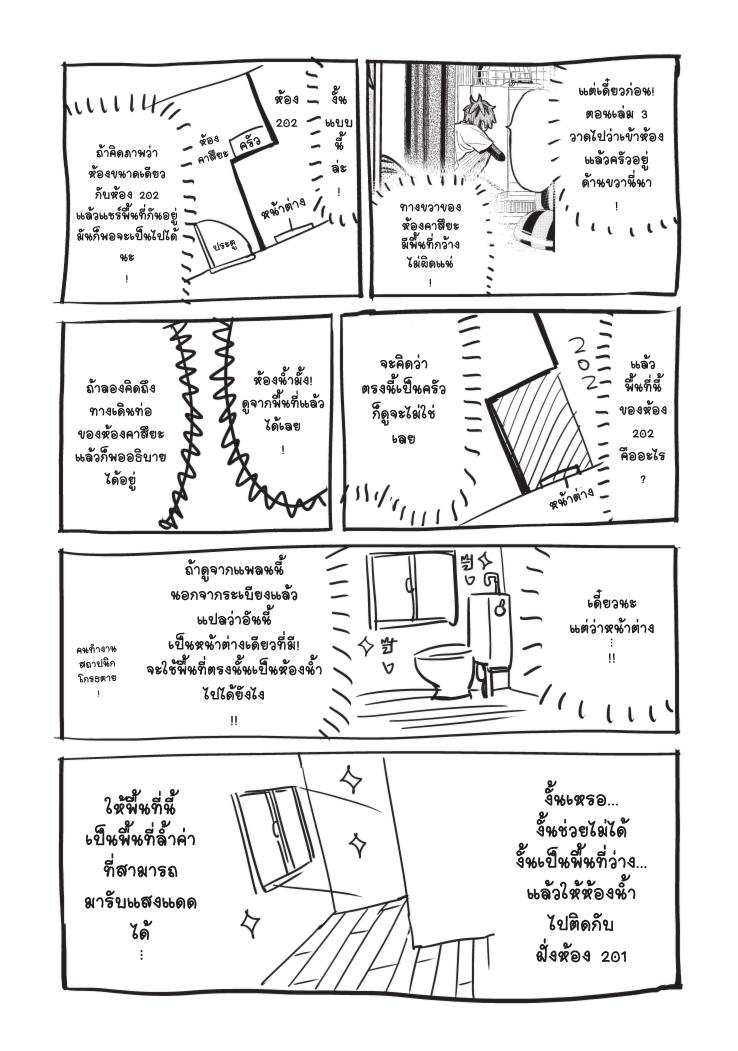 แต่เดี๋ยวก่อน!
ตอนเล่ม 3
วาดไปว่าเข้าห้อง
แล้วครัวอยู่
ด้านขวานี่นา
!
ทางขวาของ
ห้องคาสึยะ
มีพื้นที่กว้าง
ไม่ผิดแน่
!
งั้น
แบบ
นี้
ล่ะ
!
ห้อง
202
ห้อง
คาสึยะ
ครัว
หน้าต่าง
ประตู
ถ้าคิดภาพว่า
ห้องขนาดเดียว
กับห้อง 202
แล้วแชร์พื้นที่กันอยู่
มันก็พอจะเป็นไปได้
นะ
!
แล้ว
พื้นที่นี้
ของห้อง
202
คืออะไร
?
202
หน้าต่าง
จะคิดว่า
ตรงนี้เป็นครัว
ก็ดูจะไม่ใช่
เลย
ห้องน้ำมั้ง!
ดูจากพื้นที่แล้ว
ได้เลย
!
ถ้าลองคิดถึง
ทางเดินท่อ
ของห้องคาสึยะ
แล้วก็พออธิบาย
ได้อยู่
เดี๋ยวนะ
แต่ว่าหน้าต่าง
...
!!
ถ้าดูจากแพลนนี้
นอกจากระเบียงแล้ว
แปลว่าอันนี้
เป็นหน้าต่างเดียวที่มี!
จะใช้พื้นที่ตรงนั้นเป็นห้องน้ำ
ไปได้ยังไง
!!
คนทำงาน
สถาปนิก
โกรธตาย
!
งั้นเหรอ...
งั้นช่วยไม่ได้
งั้นเป็นพื้นที่ว่าง...
แล้วให้ห้องน้ำ
ไปติดกับ
ฝั่งห้อง 201
ให้พื้นที่นี้
เป็นพื้นที่ล้ำค่า
ที่สามารถ
มารับแสงแดด
ได้
...